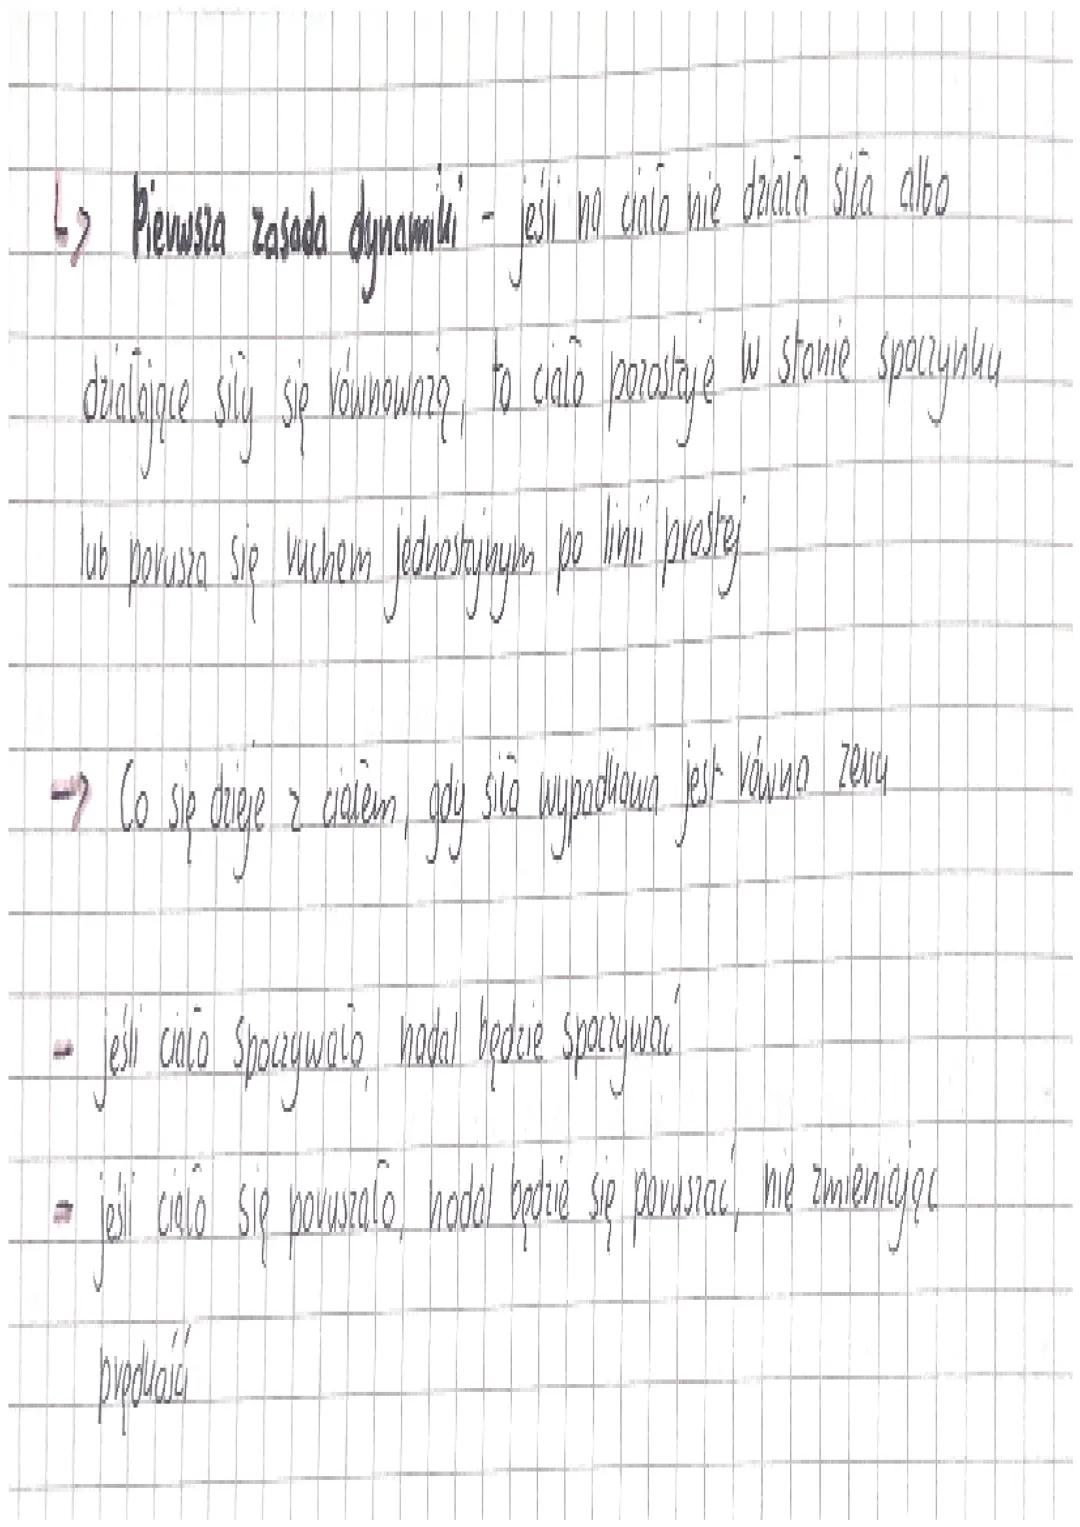 ↳ Pierwsza zasada dynamiki - jeśli na ciało nie działa siła albo
działające siły się równoważą, to ciało pozostaje w stanie spoczynku
lub porusza się ruchem jednostajnym po linii prostej
→ Co się dzieje z ciałem, gdy siła wypadkowa jest równa zeru
- jeśli ciało spoczywało, nadal będzie spoczywać
- jeśli ciało się poruszało, nadal będzie się poruszać, nie zmieniając
prędkości